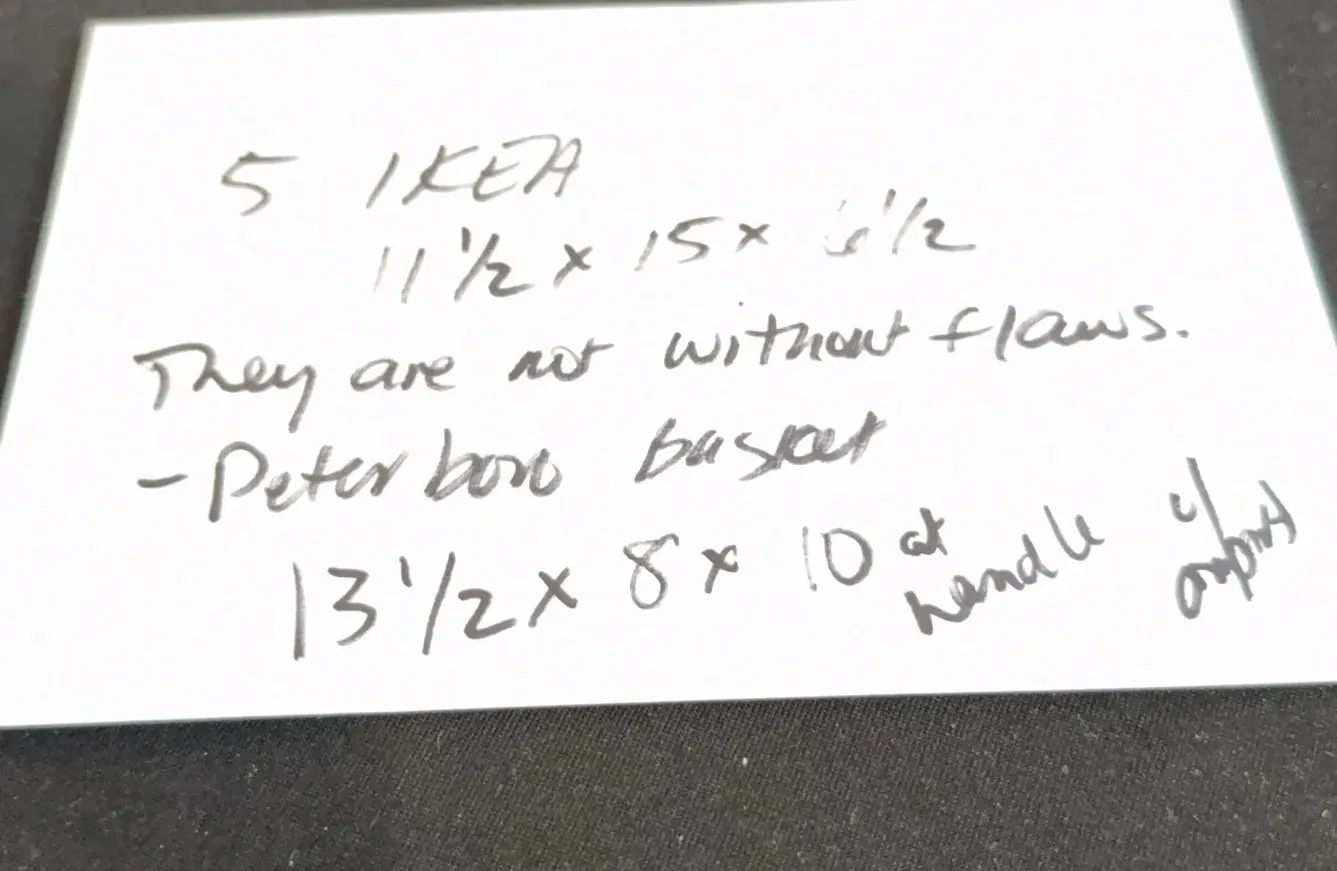 5 IKEA
11 1/2 x 15 x 6 1/2
They are not without flaws.
- Peterboro basket
13 1/2 x 8 x 10 at handle w/